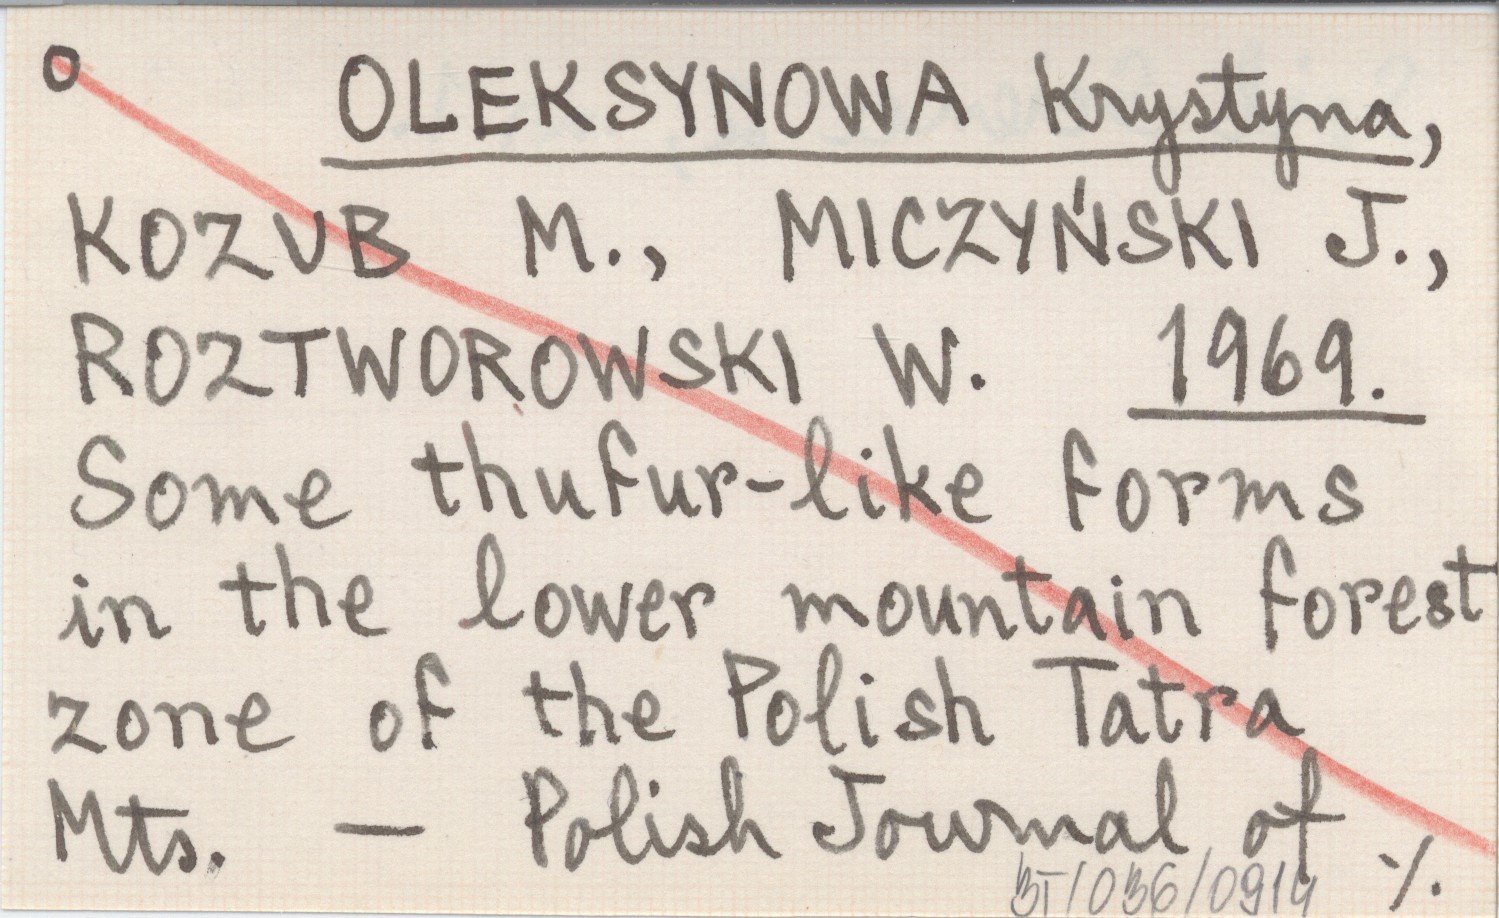 o OLEKSYNOWA Krystyna,
KOZUB M., MICZYŃSKI J.,
ROZTWOROWSKI W. 1969.
Some thufur-like forms
in the lower mountain forest
zone of the Polish Tatra
Mts. — Polish Journal of ·/.
BT/036/0914